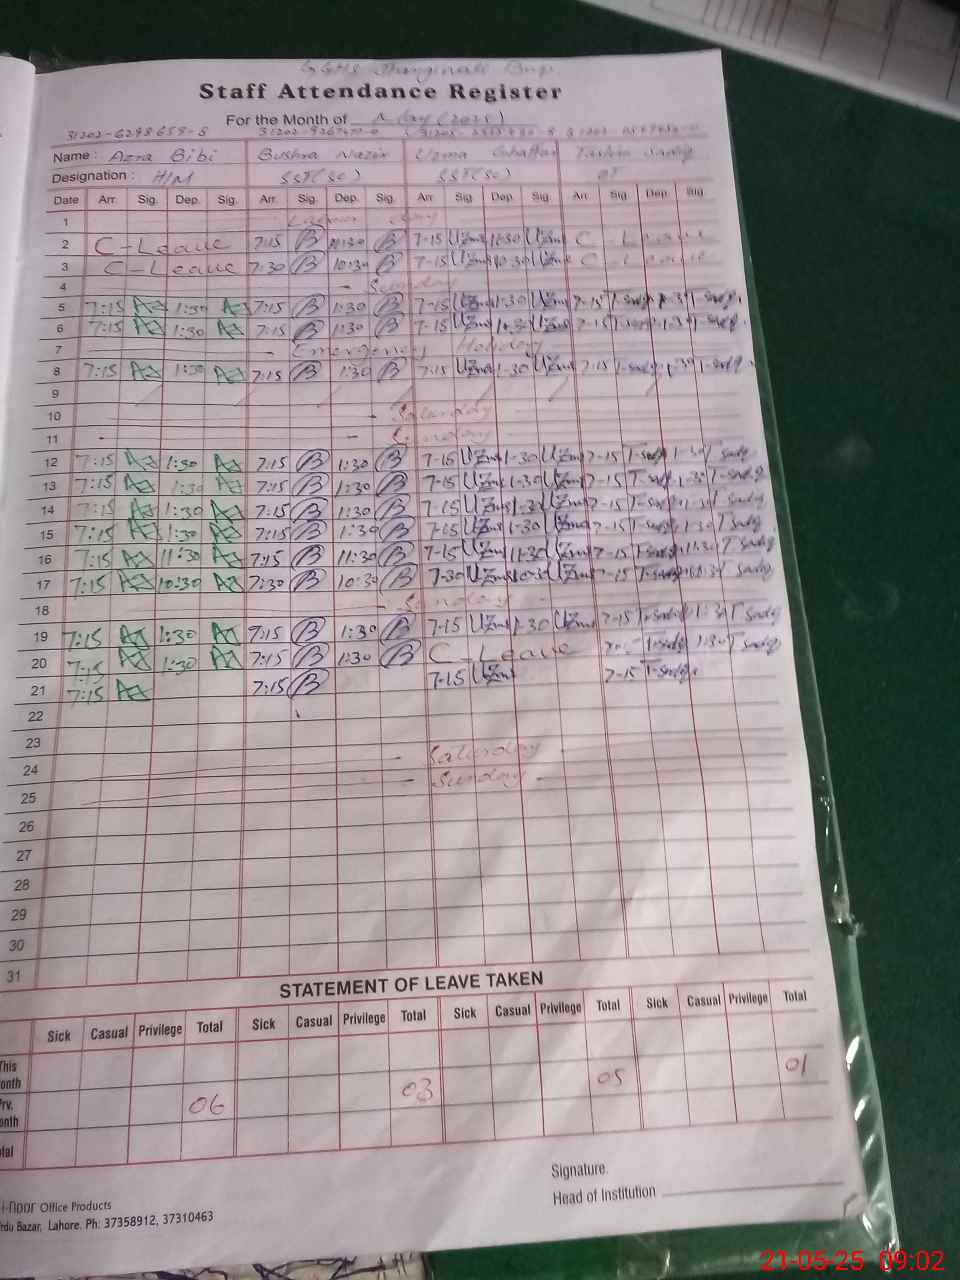 Staff Attendance Register
For the Month of May (2025)
31202-6298658-8
Name : Azra Bibi Bushra Nazir Uzma Ghaffar Tashia Sadiq
Designation : H/M SST(SC) SST(SC)
Date Arr. Sig. Dep. Sig. Arr. Sig. Dep. Sig. Arr. Sig Dep. Sig Arr Sig Dep. Sig.
1 Labour Day
2 C-Leave 7:15 B 11:30 B 7-15 Uzma 11-30 Uzma C-Leave
3 C-Leave 7:30 B 10:30 B 7-15 Uzma 10-30 Uzma C-Leave
4 - Sunday
5 7:15 Az 1:30 Az 7:15 B 1:30 B 7-15 Uzma 1-30 Uzma 7-15 T-sadiq 1-30 T-sadiq
6 7:15 Az 1:30 Az 7:15 B 1:30 B 7-15 Uzma 1-30 Uzma 7-15 T-sadiq 1-30 T-sadiq
7 - Emergency Holiday
8 7:15 Az 1:30 Az 7:15 B 1:30 B 7-15 Uzma 1-30 Uzma 7-15 T-sadiq 1-30 T-sadiq
9
10 - Saturday -
11 - Sunday -
12 7:15 Az 1:30 Az 7:15 B 1:30 B 7-15 Uzma 1-30 Uzma 7-15 T-sadiq 1-30 T sadiq
13 7:15 Az 1:30 Az 7:15 B 1:30 B 7-15 Uzma 1-30 Uzma 7-15 T-sadiq 1-30 T-sadiq
14 7:15 Az 1:30 Az 7:15 B 1:30 B 7-15 Uzma 1-30 Uzma 7-15 T-sadiq 1-30 T sadiq
15 7:15 Az 1:30 Az 7:15 B 1:30 B 7-15 Uzma 1-30 Uzma 7-15 T-sadiq 1:30 T sadiq
16 7:15 Az 11:30 Az 7:15 B 11:30 B 7-15 Uzma 11-30 Uzma 7-15 T-sadiq 11:30 T sadiq
17 7:15 Az 10:30 Az 7:30 B 10:30 B 7-30 Uzma 10-30 Uzma 7-15 T-sadiq 10:30 T sadiq
18 - Sunday
19 7:15 Az 1:30 Az 7:15 B 1:30 B 7-15 Uzma 1-30 Uzma 7-15 T-sadiq 1:30 T sadiq
20 7:15 Az 1:30 Az 7:15 B 1:30 B C-Leave T-sadiq 1:30 T sadiq
21 7:15 Az 7:15 B 7-15 Uzma 7-15 T-sadiq
22
23
24 - Saturday -
25 - Sunday -
26
27
28
29
30
31
STATEMENT OF LEAVE TAKEN
Sick Casual Privilege Total Sick Casual Privilege Total Sick Casual Privilege Total Sick Casual Privilege Total
This
onth
rv. 06 03 05 01
onth
tal
Signature.
Head of Institution
Office Products
rdu Bazar, Lahore. Ph: 37358912, 37310463
21-05-25 09:02